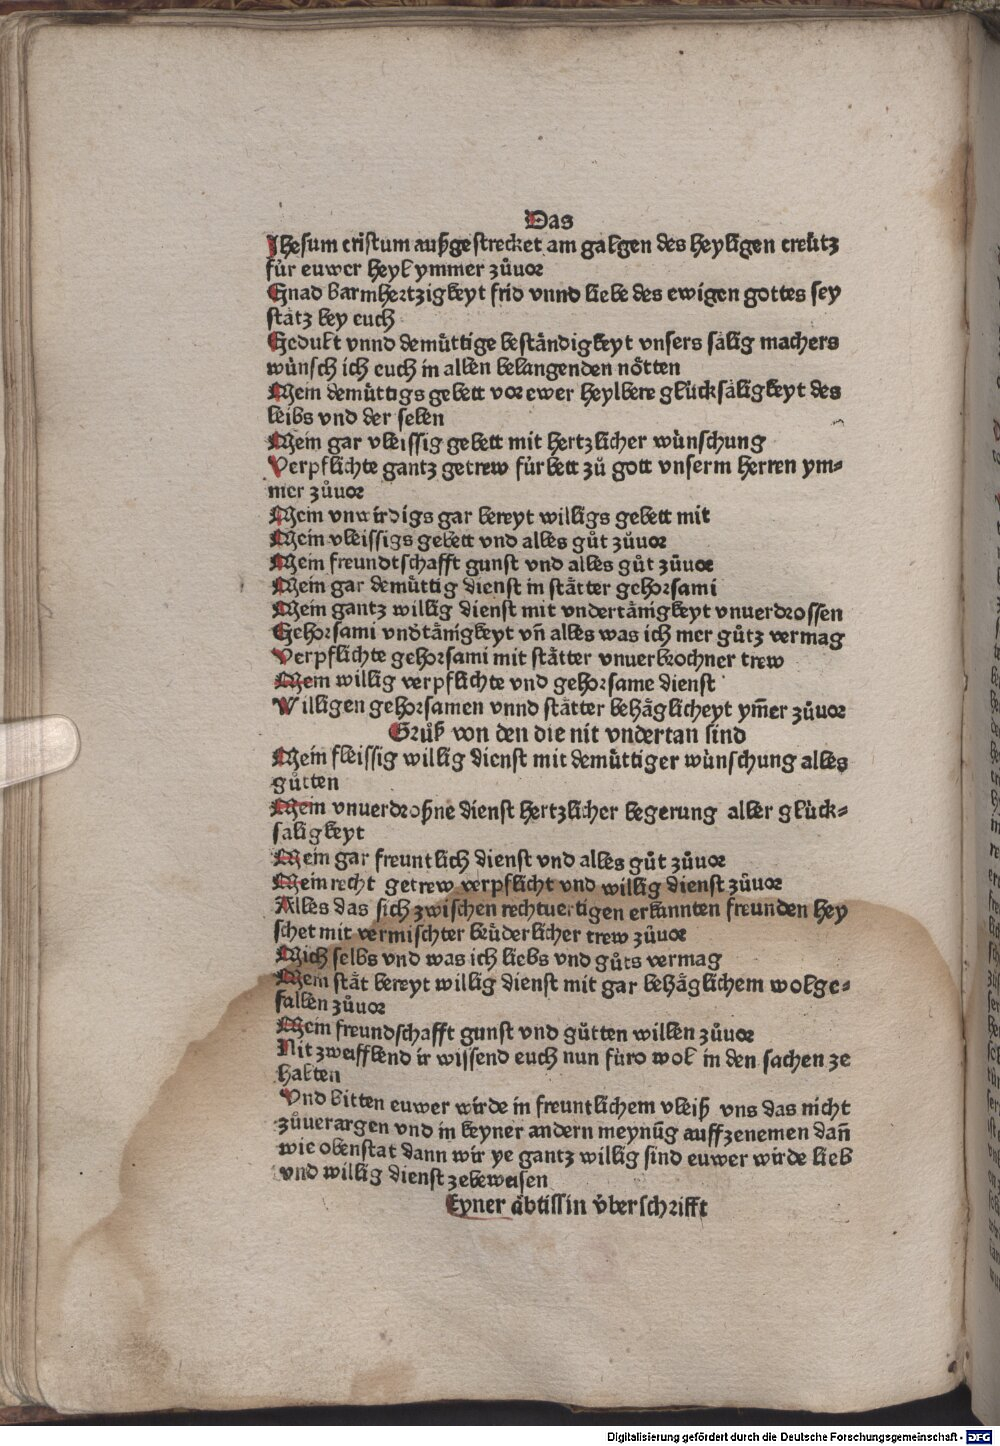 Das
Jhesum cristum außgestrecket am galgen des heyligen creütz
für euwer heyl ymmer zůuor
Gnad barmhertzigkeyt frid vnnd liebe des ewigen gottes sey
stätz bey euch
Gedult vnnd demüttige beständigkeyt vnsers sälig machers
wünsch ich euch in allen belangenden nötten
Mein demüttigs gebett vor ewer heylbere glücksäligkeyt des
leibs vnd der selen
Mein gar vleissig gebett mit hertzlicher wünschung
Verpflichte gantz getrew fürbett zů gott vnserm herren ym-
mer zůuor
Mein vnwirdigs gar bereyt willigs gebett mit
Mein vleissigs gebett vnd alles gůt zůuor
Mein freundtschafft gunst vnd alles gůt zůuor
Mein gar demüttig dienst in stätter gehorsami
Mein gantz willig dienst mit vndertänigkeyt vnuerdrossen
Gehorsami vndtänigkeyt vn̄ alles was ich mer gůtz vermag
Verpflichte gehorsami mit stätter vnuerbrochner trew
Mein willig verpflichte vnd gehorsame dienst
Willigen gehorsamen vnnd stätter behäglicheyt ym̄er zůuor
Grůß von den die nit vndertan sind
Mein fleissig willig dienst mit demüttiger wünschung alles
gůtten
Mein vnuerdroßne dienst hertzlicher begerung aller glück-
säligkeyt
Mein gar freuntlich dienst vnd alles gůt zůuor
Mein recht getrew verpflicht vnd willig dienst zůuor
Alles das sich zwischen rechtuertigen erkannten freunden hey
schet mit vermischter brüderlicher trew zůuor
Mich selbs vnd was ich liebs vnd gůts vermag
Mein stät bereyt willig dienst mit gar behäglichem wolge-
fallen zůuor
Mein freundschafft gunst vnd gůtten willen zůuor
Nit zweifflend ir wissend euch nun füro wol in den sachen ze
halten
Vnd bitten euwer wirde in freuntlichem vleiß vns das nicht
zůuerargen vnd in keyner andern meynūg auffzenemen dan̄
wie obenstat dann wir ye gantz willig sind euwer wirde lieb
vnd willig dienst zebeweisen
Eyner äbtissin überschrifft
Digitalisierung gefördert durch die Deutsche Forschungsgemeinschaft - DFG